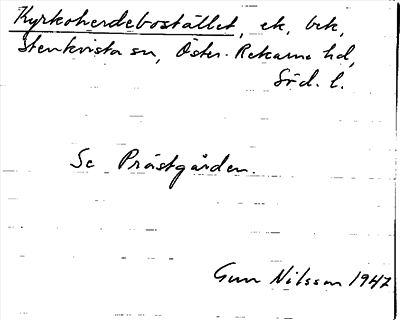 Kyrkoherdebostället, ek, bek,
Stenkvista sn, Öster-Rekarne hd,
Söd. l.
Se Prästgården.
Gun Nilsson 1947